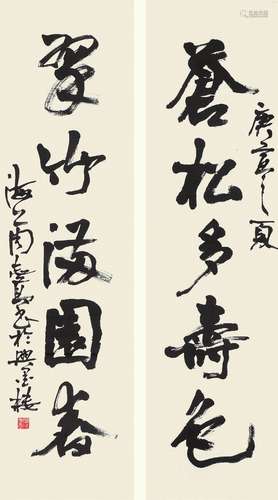 蒼松多壽色
庚寅之夏
翠竹滿園春
海上周慧珺書於興墨樓